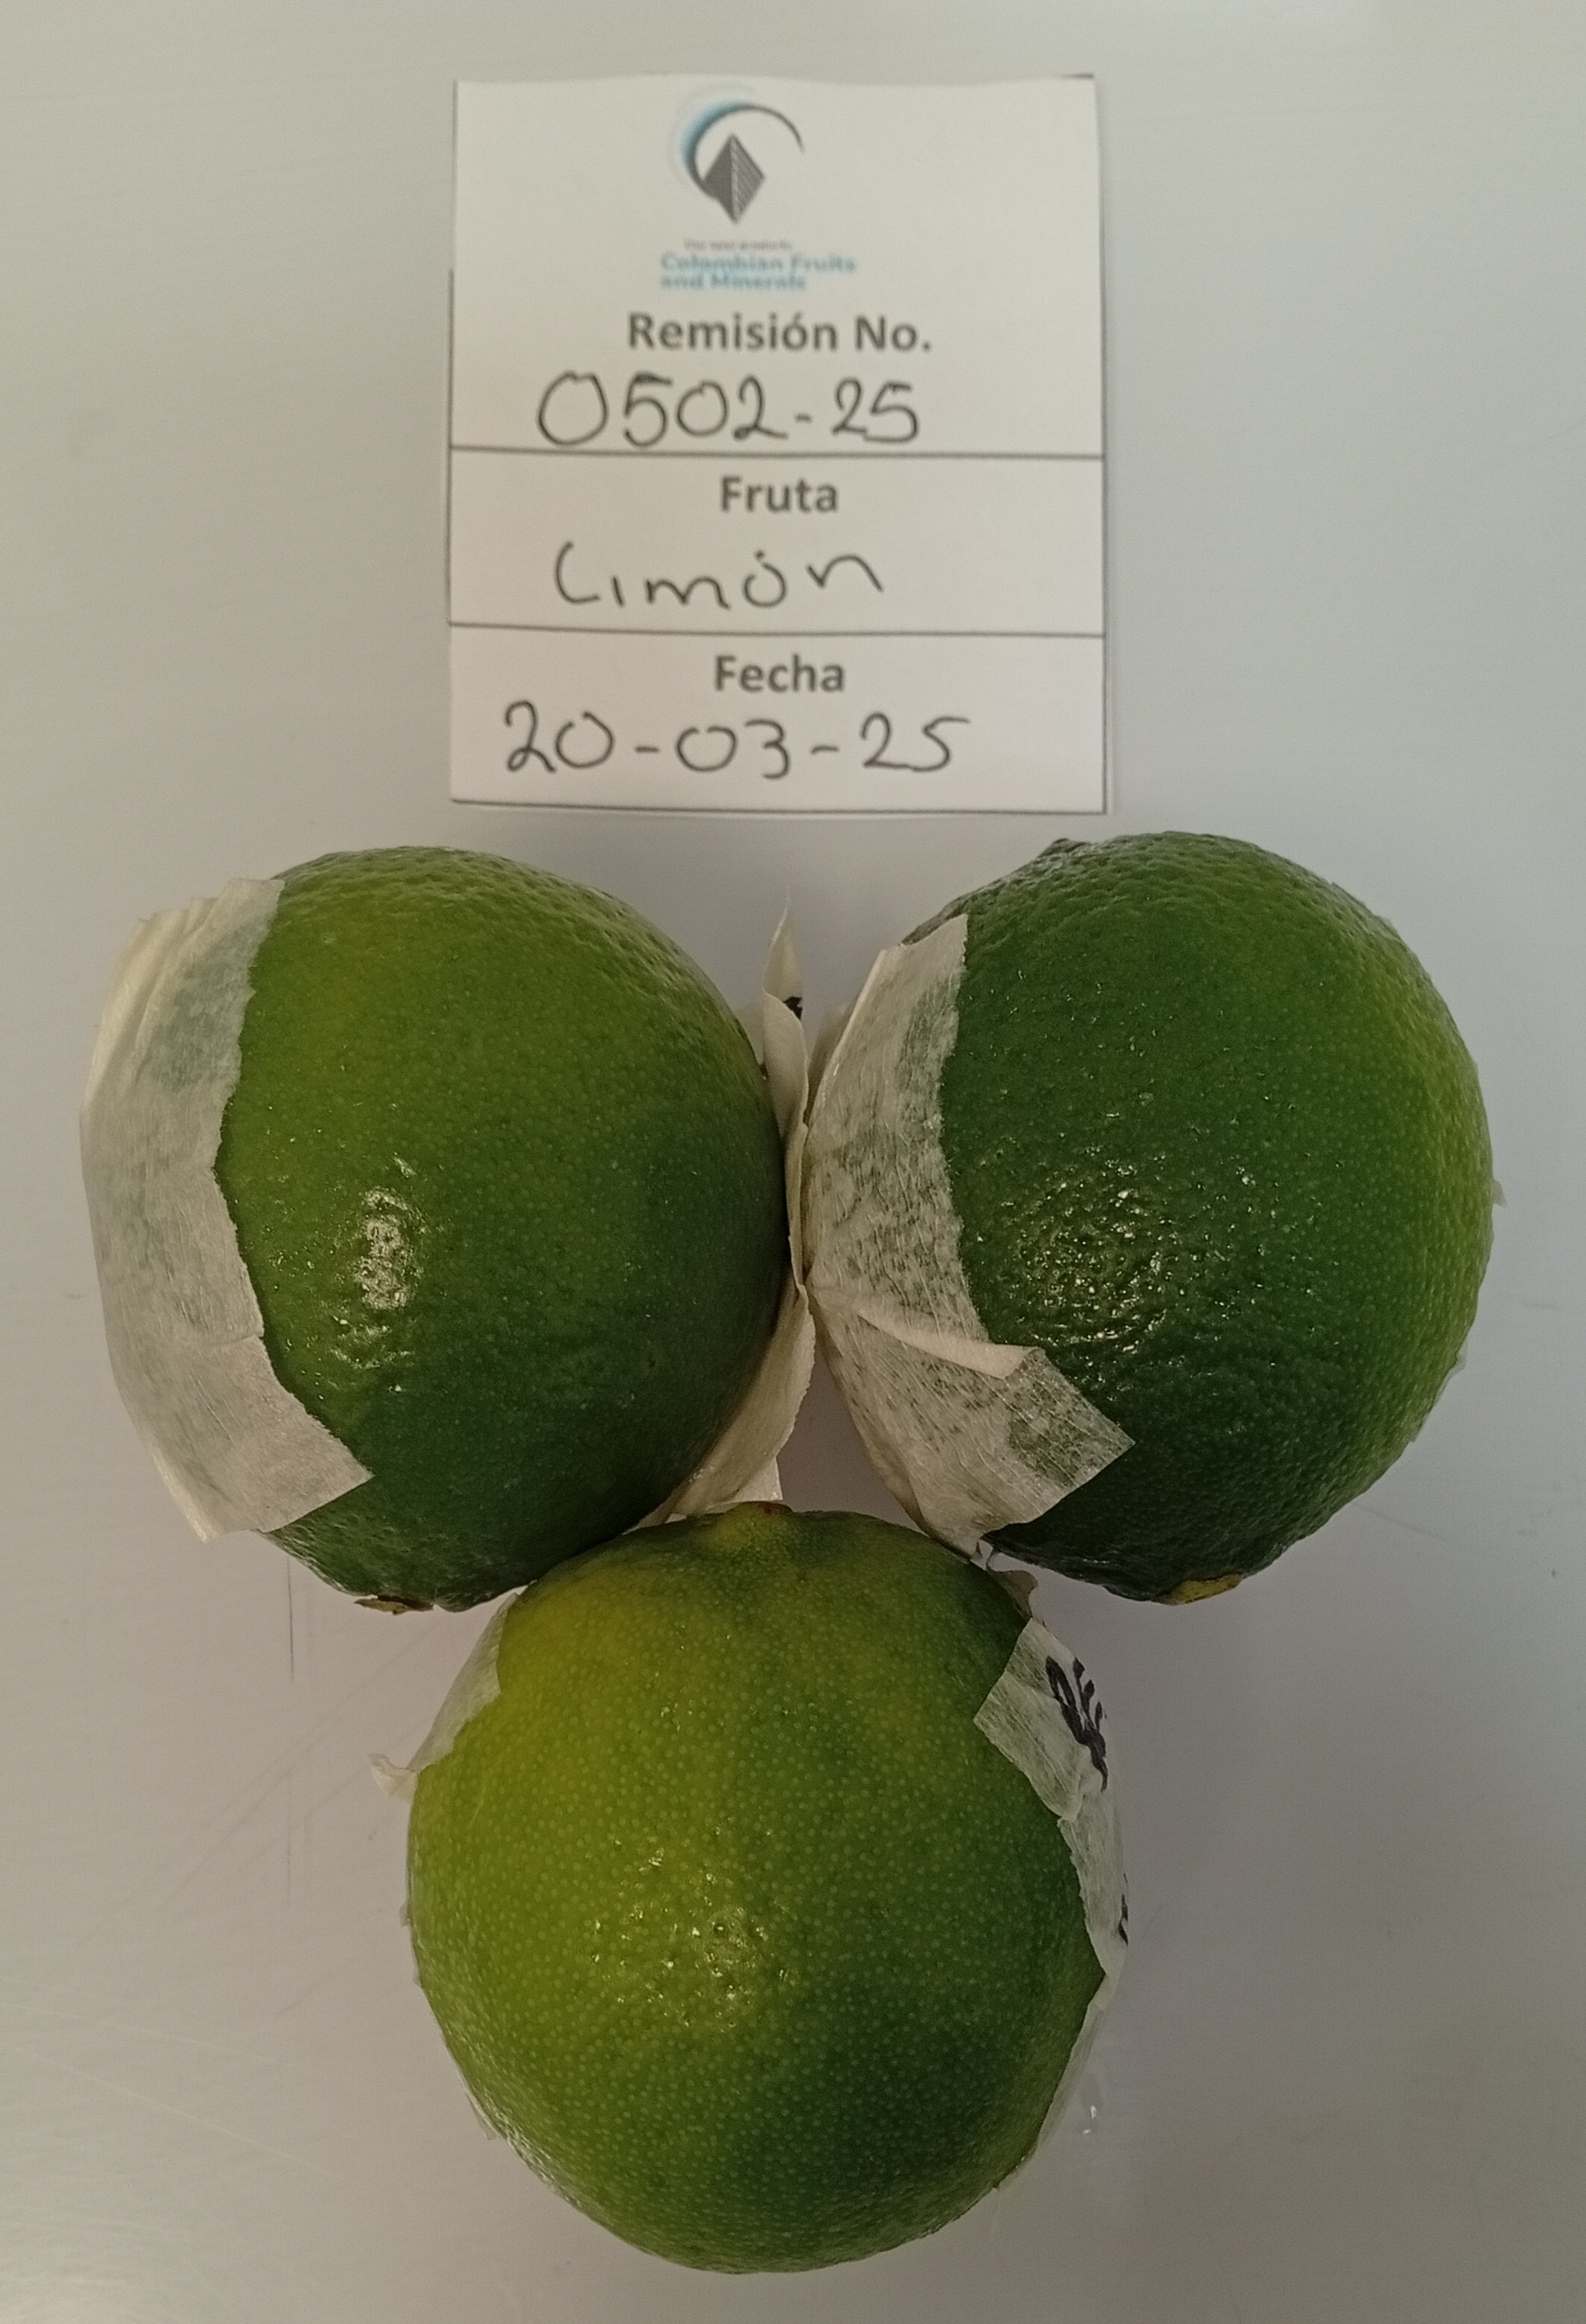 Colombian Fruits
and Minerals
Remisión No.
0502-25
Fruta
Limón
Fecha
20-03-25